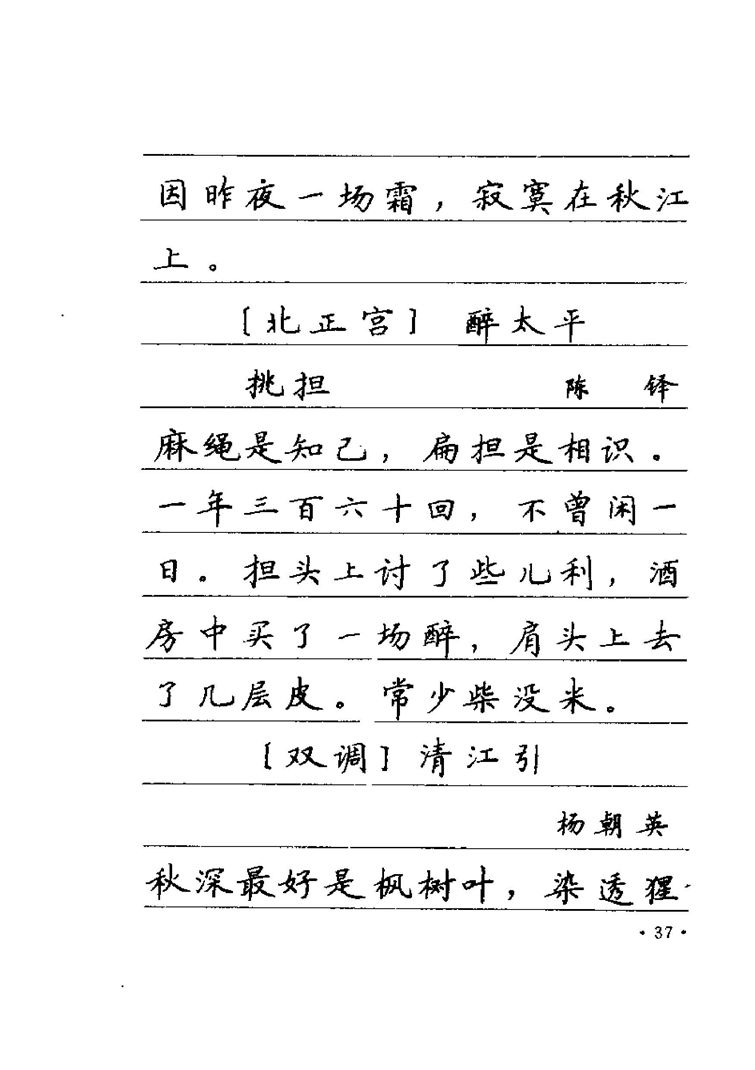 因昨夜一场霜，寂寞在秋江
上。
［北正宫］ 醉太平
挑担 陈 铎
麻绳是知己，扁担是相识。
一年三百六十回，不曾闲一
日。担头上讨了些儿利，酒
房中买了一场醉，肩头上去
了几层皮。常少柴没米。
［双调］清江引
杨朝英
秋深最好是枫树叶，染透猩
·37·